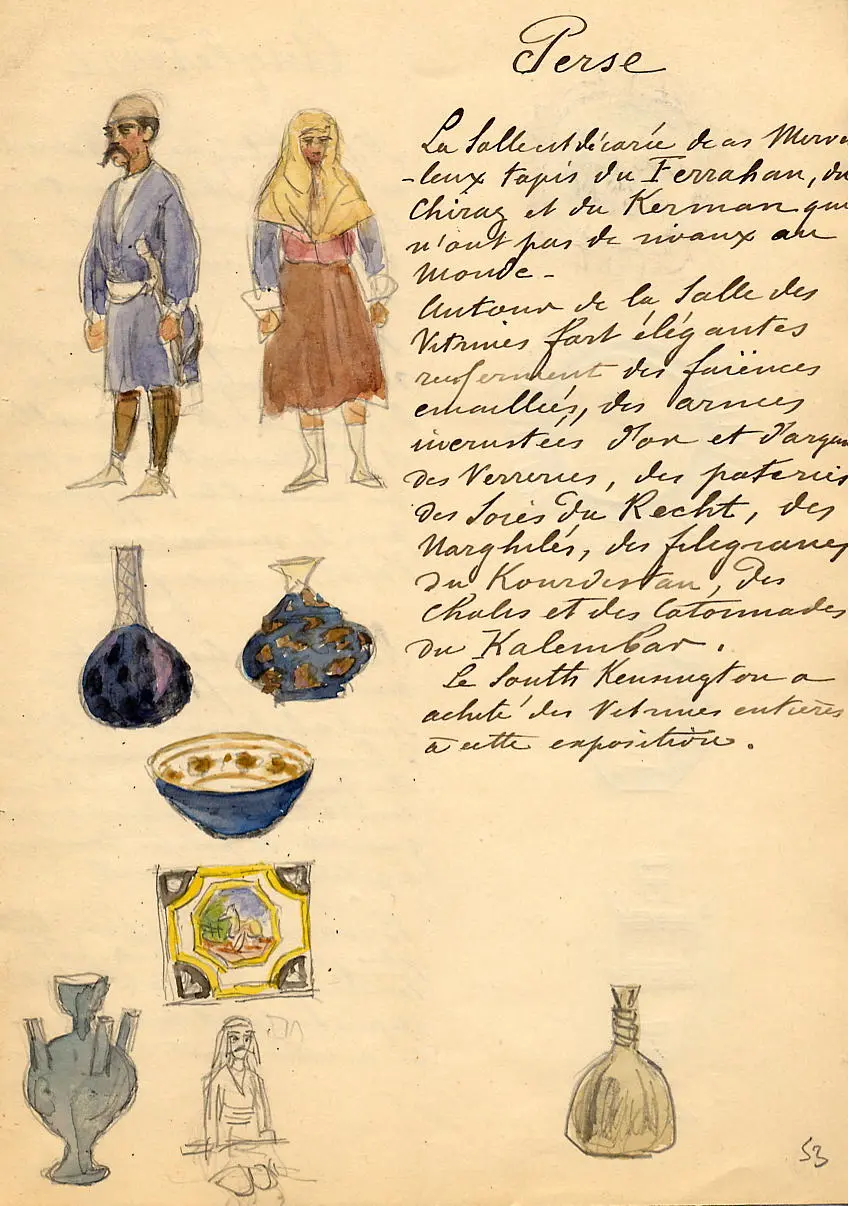 Perse
La Salle est décorée de ces Mervei
-leux tapis du Ferrahan, du
Chiraz et du Kerman qui
n'ont pas de rivaux au
Monde -
Autour de la Salle des
Vitrines fort élégantes
renferment des faïences
emaillées, des armes
incrustées d'or et d'argent
des Verreries, des poteries
des Soies du Recht, des
Narghilés, des filigranes
du Kourdistan, des
Chales et des Cotonnades
du Kalembar.
Le South Kensington a
acheté des Vitrines entières
à cette exposition.
53